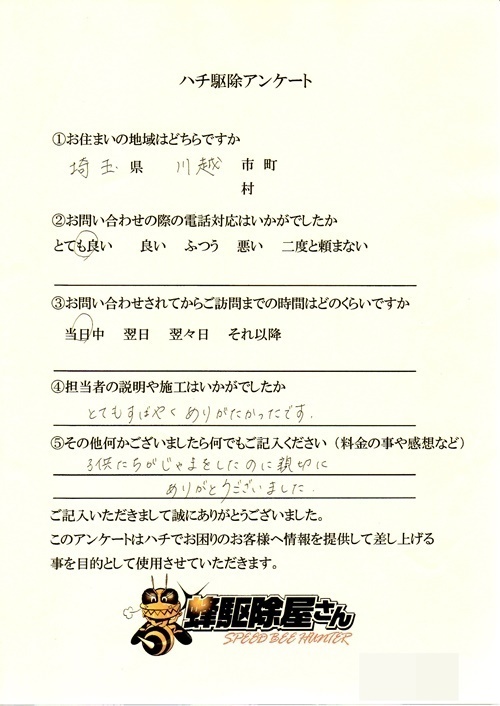 ハチ駆除アンケート
①お住まいの地域はどちらですか
埼玉 県 川越 市 町
村
②お問い合わせの際の電話対応はいかがでしたか
とても良い 良い ふつう 悪い 二度と頼まない
③お問い合わせされてからご訪問までの時間はどのくらいですか
当日中 翌日 翌々日 それ以降
④担当者の説明や施工はいかがでしたか
とてもすばやくありがたかったです.
⑤その他何かございましたら何でもご記入ください（料金の事や感想など）
子供たちがじゃまをしたのに親切に
ありがとうございました.
ご記入いただきまして誠にありがとうございました。
このアンケートはハチでお困りのお客様へ情報を提供して差し上げる
事を目的として使用させていただきます。
蜂駆除屋さん
SPEED BEE HUNTER